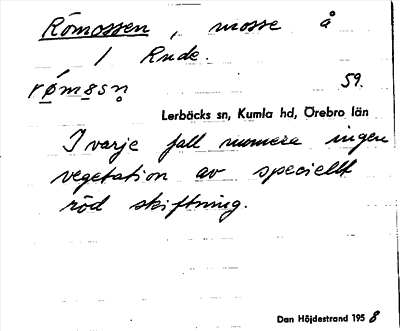 Römossen, mosse å
1 Rude.
røm8sn 59.
Lerbäcks sn, Kumla hd, Örebro län
I varje fall numera ingen
vegetation av speciellt
röd skiftning.
Dan Höjdestrand 1958